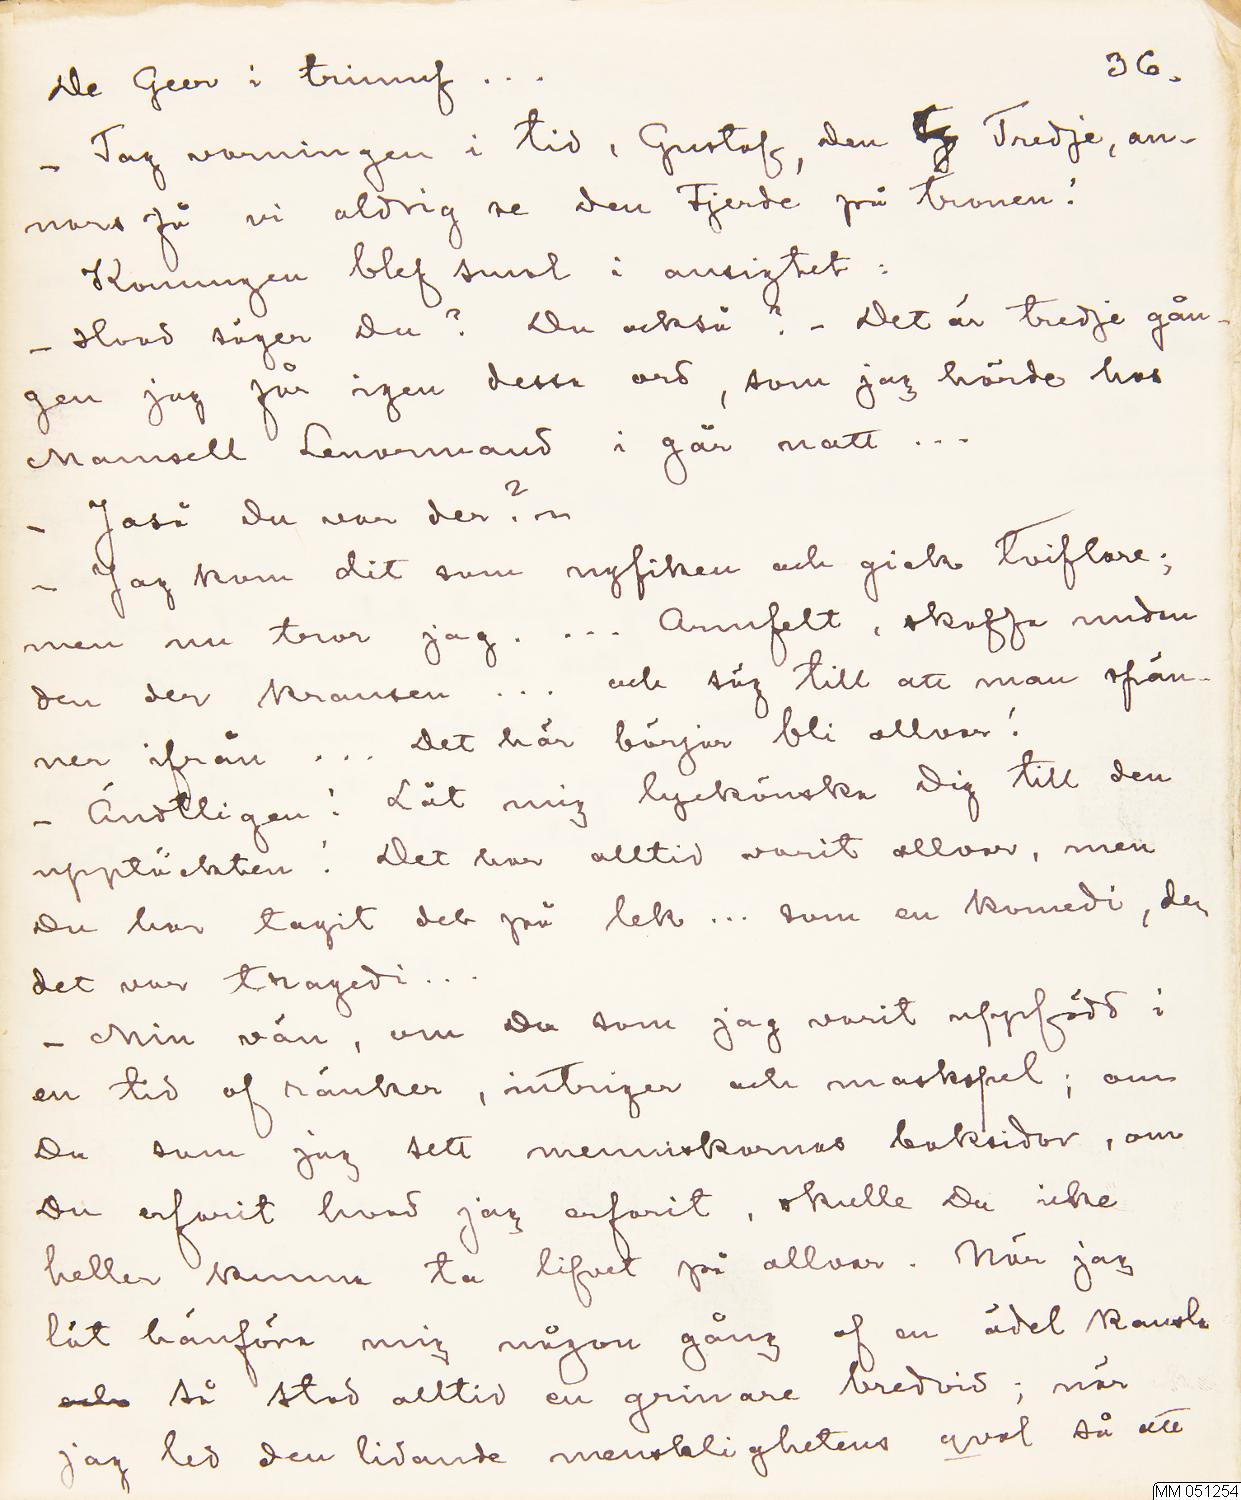 De Geer i triumf ... 36.
– Tag varningen i tid, Gustaf, den Tredje, an-
nars få vi aldrig se den Fjerde på tronen!
Konungen blef smal i ansigtet:
– Hvad säger Du? Du också? – Det är tredje gån-
gen jag får igen dessa ord, som jag hörde hos
Mamsell Lenormand i går natt ...
– Jaså Du var der?
– Jag kom dit som nyfiken och gick tviflare;
men nu tror jag. ... Armfelt, skaffa undan
den der kransen ... och säg till att man spän-
ner ifrån ... Det här börjar bli allvar!
– Ändtligen! Låt mig lyckönska Dig till den
upptäckten! Det har alltid varit allvar, men
Du har tagit det på lek ... som en komedi, der
det var tragedi ...
– Min vän, om Du som jag varit uppfödd i
en tid af ränker, intriger och maskspel; om
Du som jag sett menniskornas baksidor, om
Du erfarit hvad jag erfarit, skulle Du icke
heller kunna ta lifvet på allvar. När jag
låt hänföra mig någon gång af en ädel känsla
och så stod alltid en grinare bredvid; när
jag led den lidande mensklighetens qval så att
MM 051254